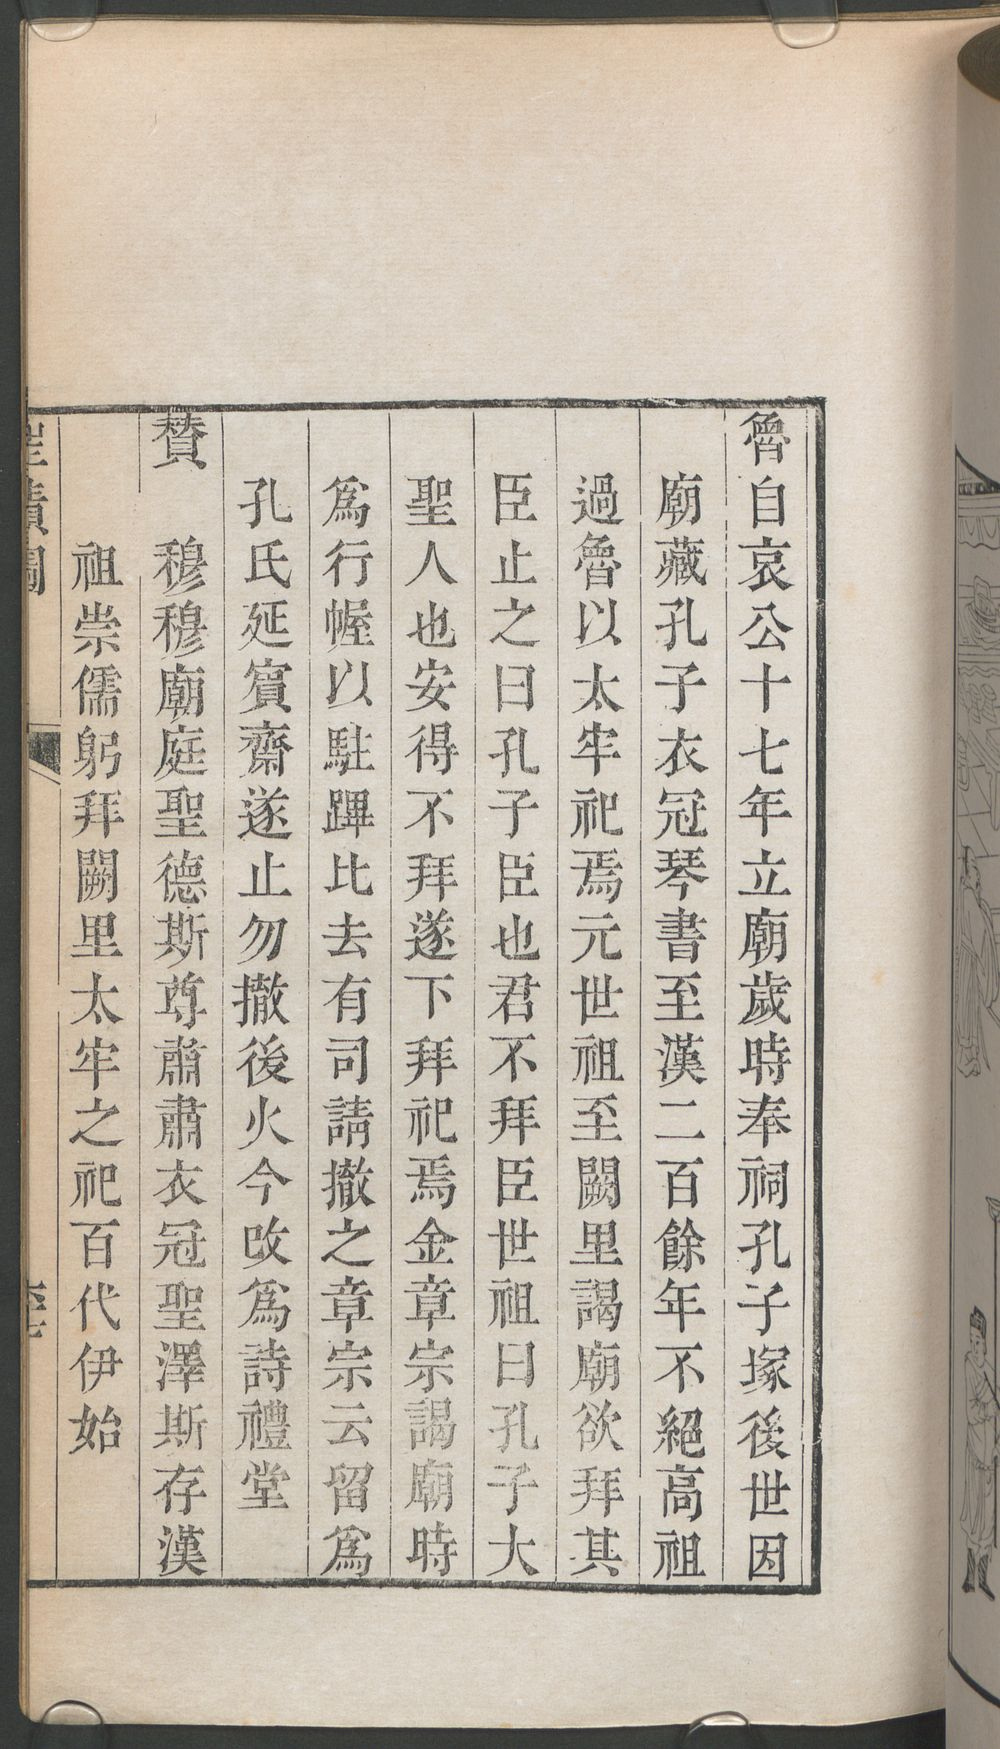 魯自哀公十七年立廟歲時奉祠孔子塚後世因
廟藏孔子衣冠琴書至漢二百餘年不絕高祖
過魯以太牢祀焉元世祖至闕里謁廟欲拜其
臣止之曰孔子臣也君不拜臣世祖曰孔子大
聖人也安得不拜遂下拜祀焉金章宗謁廟時
爲行幄以駐蹕比去有司請撤之章宗云留爲
孔氏延賓齋遂止勿撤後火今改爲詩禮堂
贊 穆穆廟庭聖德斯尊肅肅衣冠聖澤斯存漢
祖崇儒躬拜闕里太牢之祀百代伊始
聖蹟圖